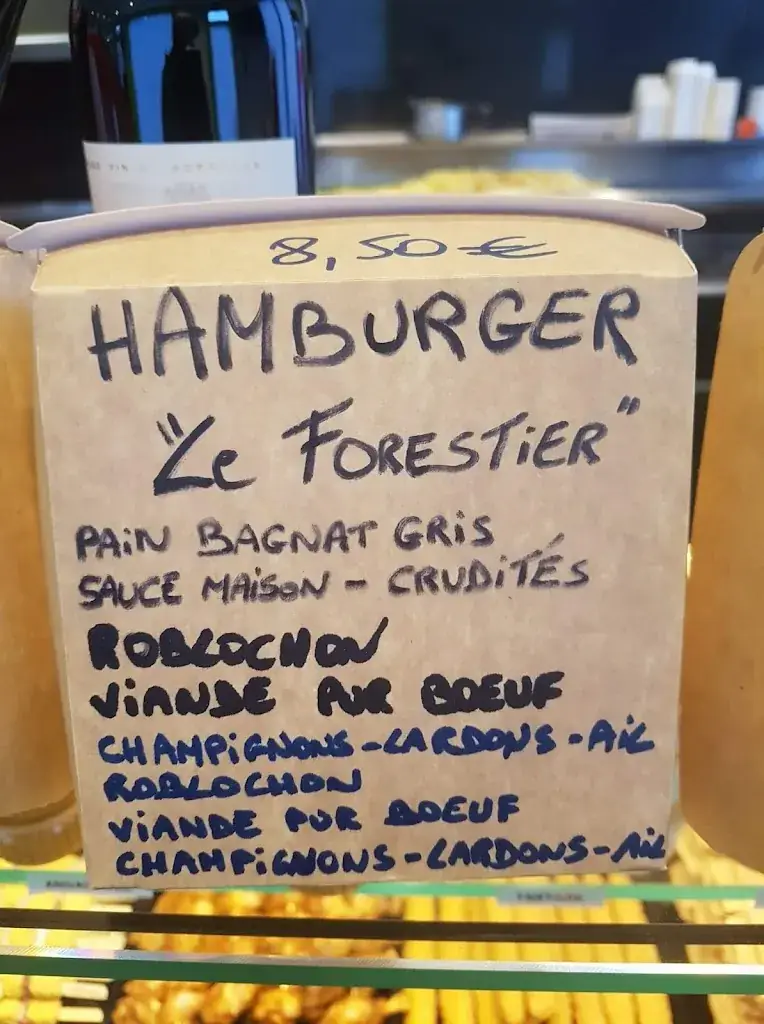 8,50 €
HAMBURGER
"Le FORESTiER"
PAiN BAGNAT GRiS
SAUCE MAiSON - CRUDiTÉS
ROBLOCHON
ViANDE PUR BOEUF
CHAMPiGNONS - LARDONS - AiL
ROBLOCHON
ViANDE PUR BOEUF
CHAMPiGNONS - LARDONS - AiL